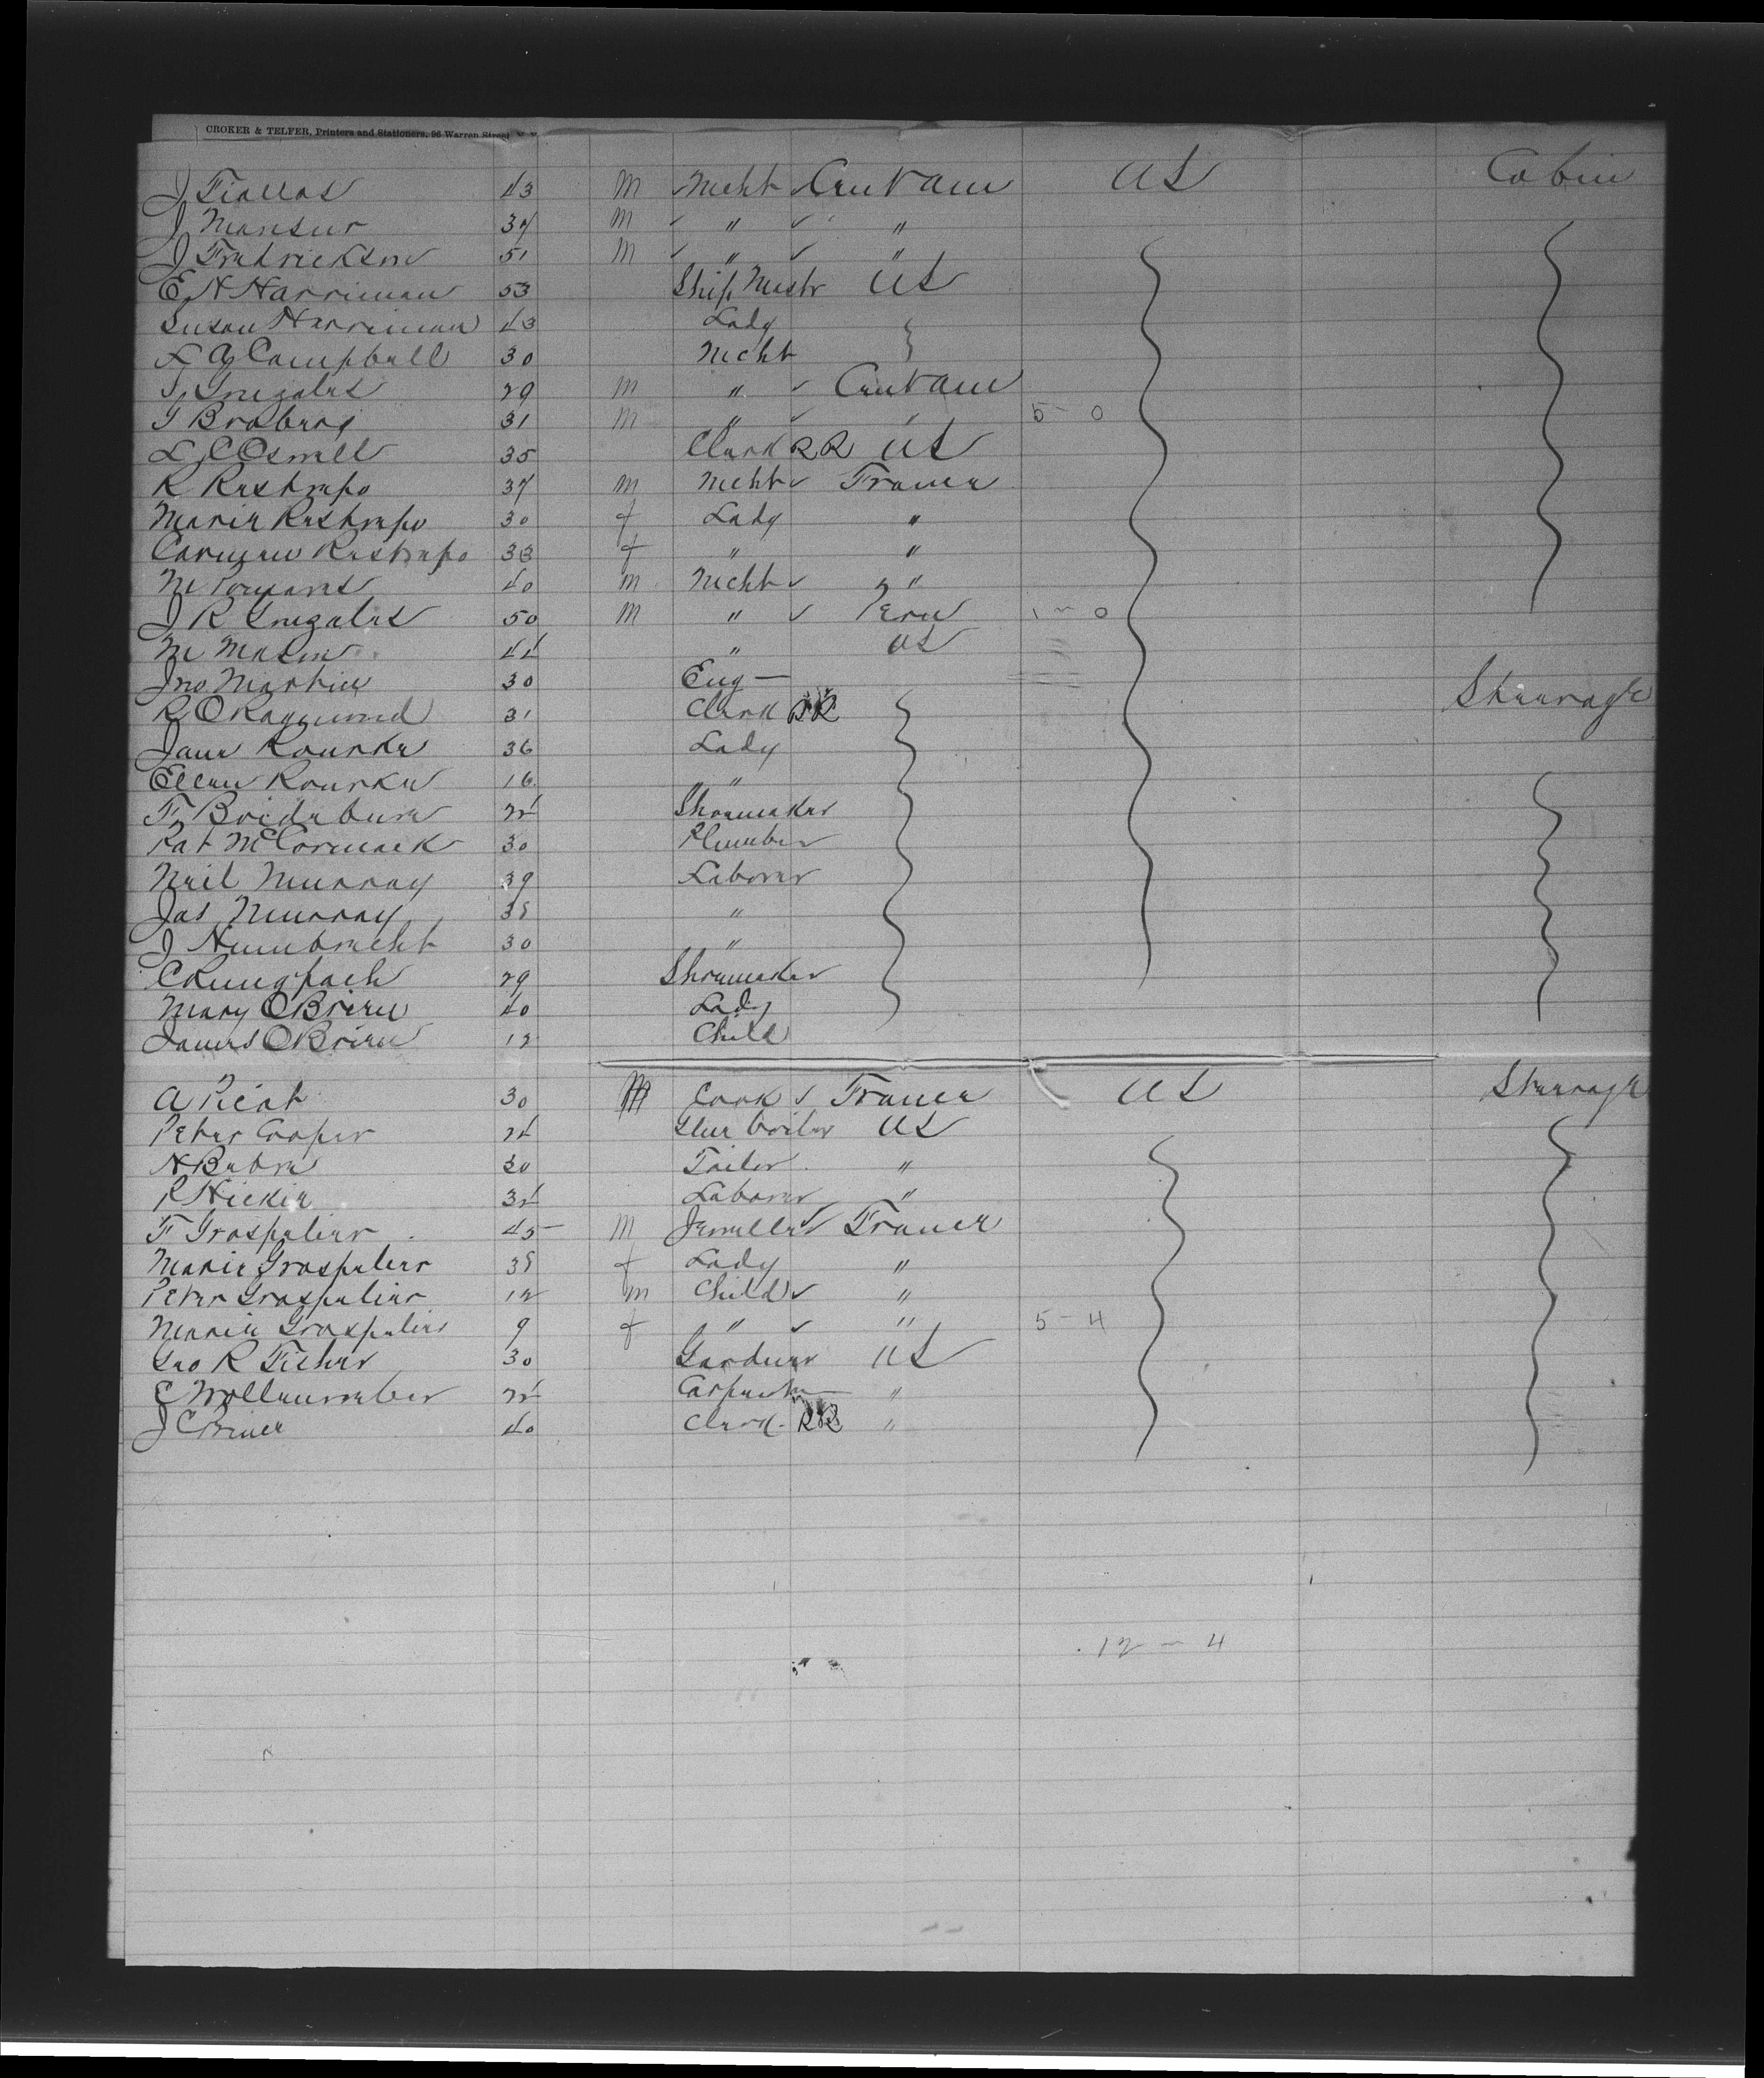 CROKER & TELFER, Printers and Stationers, 96 Warren Street, N. Y.
J Fiallos 43 M Mcht Cent Am US Cabin
J Mansur 37 M " "
J Fredrickson 51 M " "
E N Harriman 53 Ship Mastr US
Susan Harriman 43 Lady
L A Campbell 30 Mcht
S Gonzales 29 M " Cent Am
31 M " " 5 - 0
L C 35 Clerk RR US
R Restrepo 37 M Mcht France
Maria Restrepo 30 f Lady "
Carmen Restrepo 33 f " "
M 40 M Mcht "
J R Gonzales 50 M " Peru 1 - 0
M Mason 44 " US
Jno Martin 30 Eng - Steerage
R O Raymond 31 Clerk RR
Jane Rourke 36 Lady
Ellen Rourke 16 "
F 24 Shoemaker
Pat McCormack 30 Plumber
Neil Murray 39 Laborer
Jas Murray 38 "
J 30 "
C 29 Shoemaker
Mary O Brien 40 Lady
James O Brien 12 Child
A Picat 30 M Cook France US Steerage
Peter Cooper 24 Glue boiler US
N 30 Tailor "
P Hickie 34 Laborer "
F Graspelier 45 M Jeweller France
Marie Graspelier 38 f Lady "
Peter Graspelier 12 M Child "
Marie Graspelier 9 f " " 5 - 4
Geo R Fisher 30 Gardner US
E Wollenweber 24 Carpenter "
J C 40 Clerk RR "
12 - 4